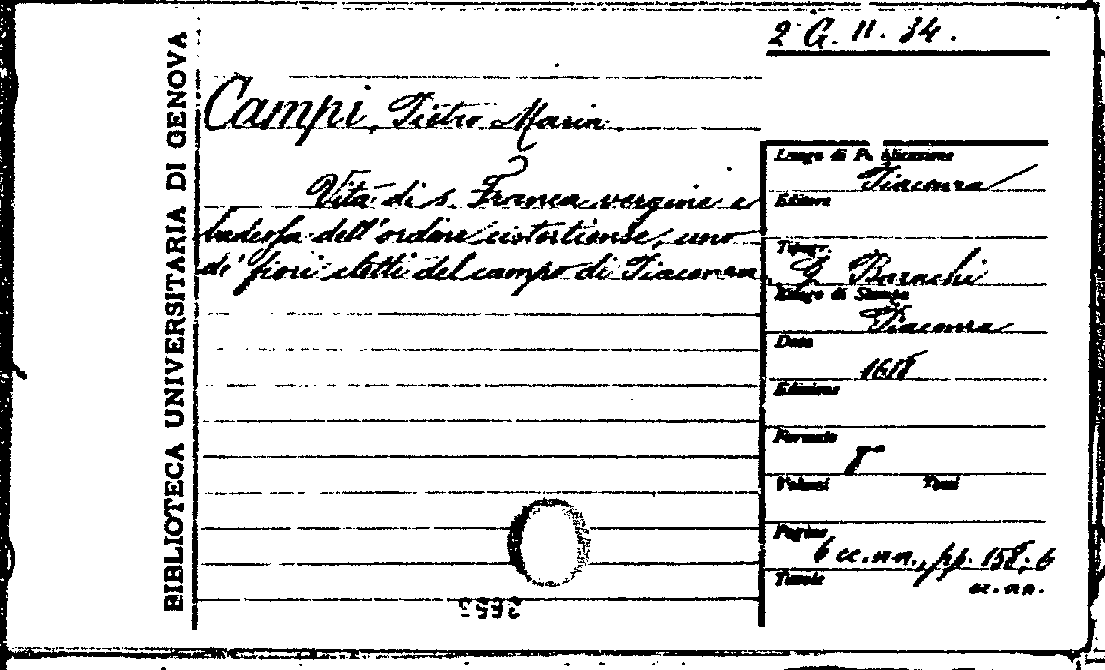 2 G. II. 34.
BIBLIOTECA UNIVERSITARIA DI GENOVA
Campi, Pietro Maria.
Vita di s. Franca vergine e
badessa dell'ordine cistertiense, uno
de' fiori eletti del campo di Piacenza
Luogo di Pubblicazione
Piacenza
Editore
Tipogr.
G. Bazachi
Luogo di Stampa
Piacenza
Data
1618
Edizione
Formato
8
Volumi Tomi
Pagine
6 cc.nn., pp. 158, 6
cc.nn.
Tavole